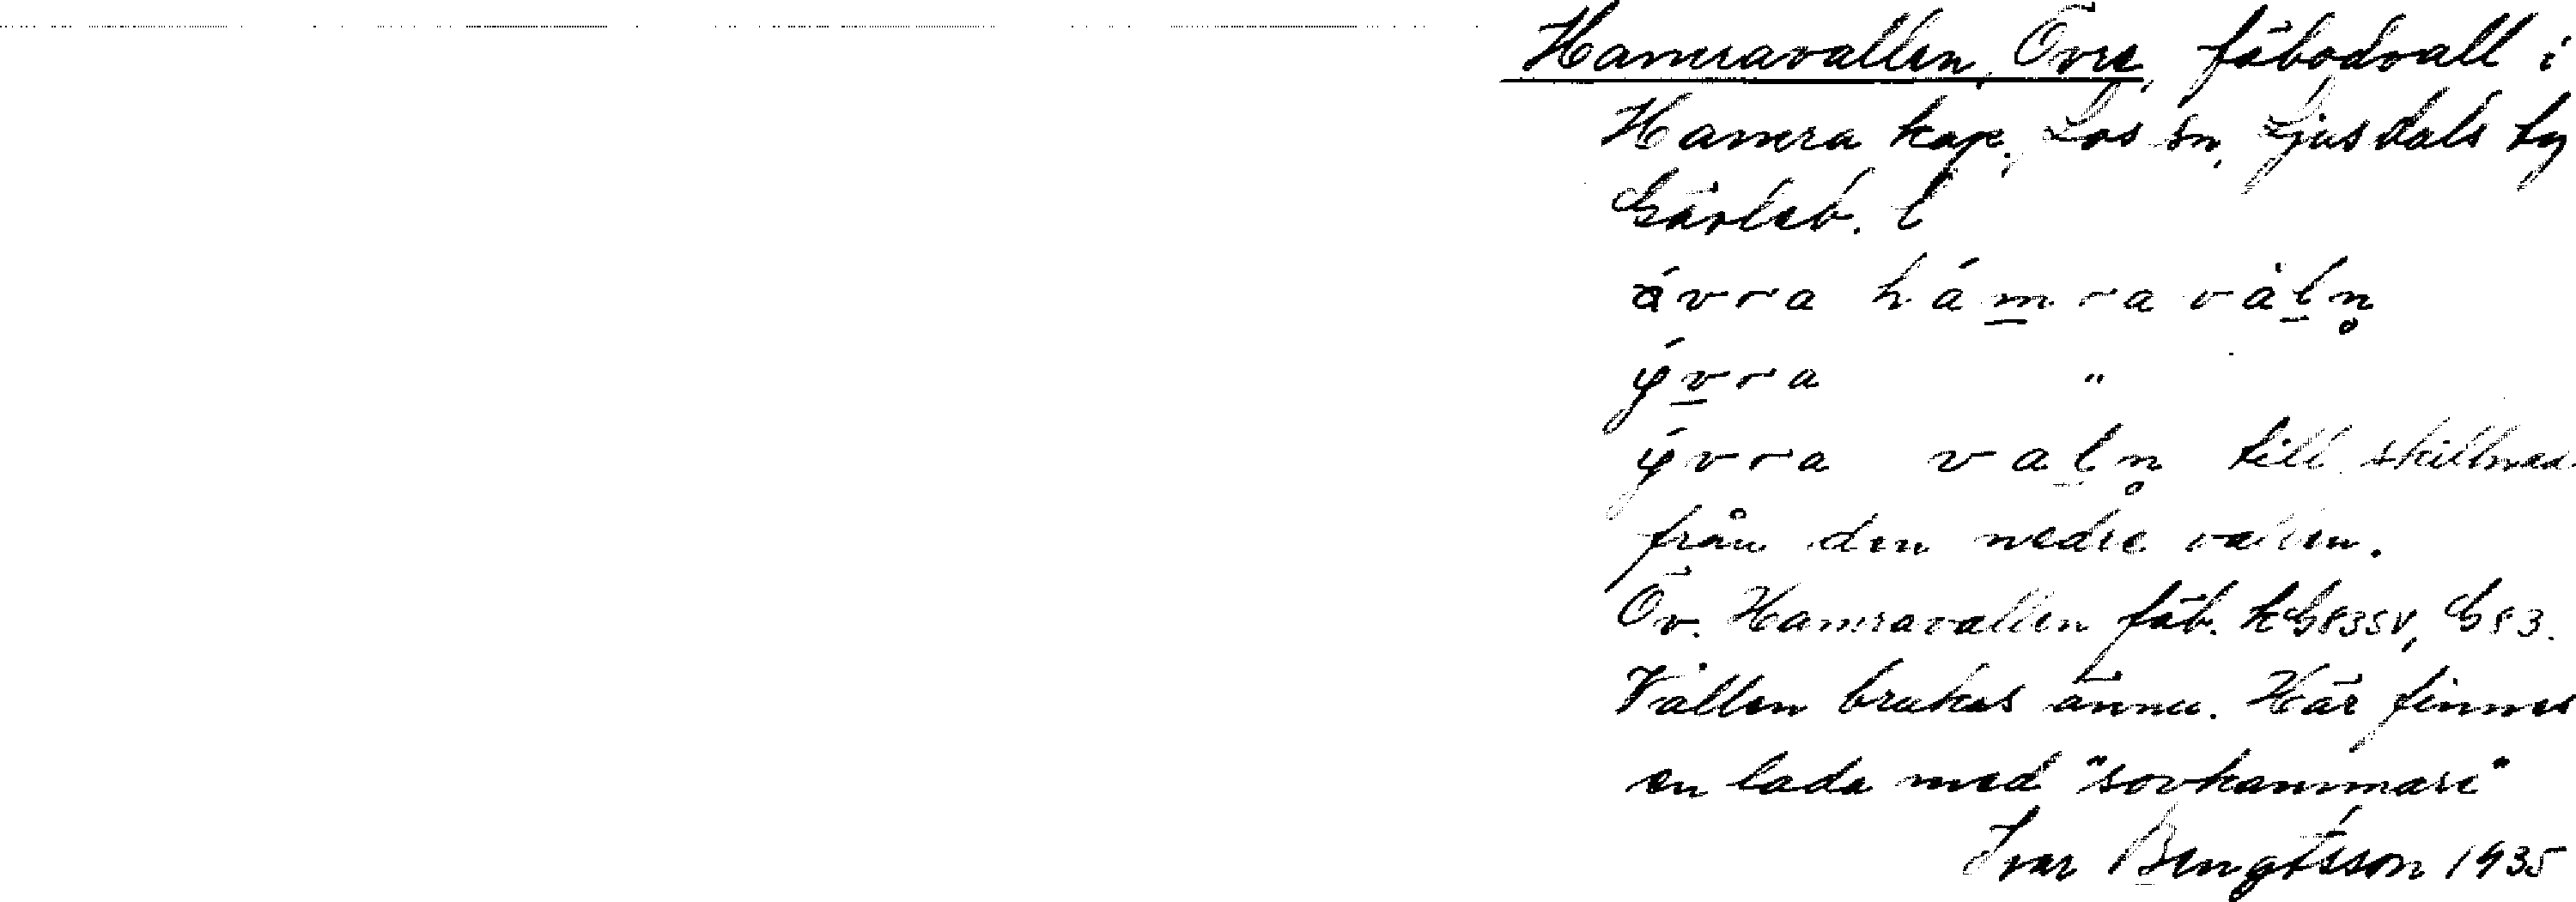 Hamravallen, Övre, fäbodvall i
Hamra kap. Los sn, Ljusdals tg
Gävleb. l
ávra hámravàln̥
ývra "
ývra valn̥ till skillnad
från den nedre vallen.
Öv. Hamravallen fäb. kG83SV, G83.
Vallen brukas ännu. Här finnes
en lada med "sovkammare"
Ivar Bengtsson 1935